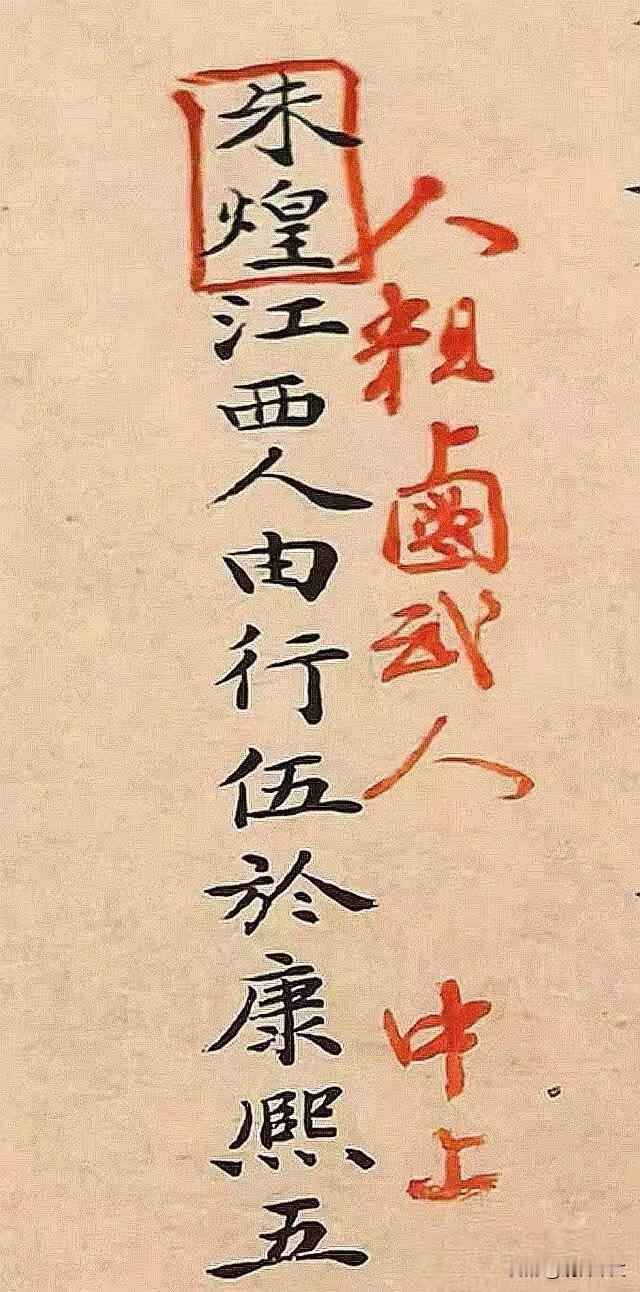 人粗鹵武人　中上
朱煌江西人由行伍於康熙五